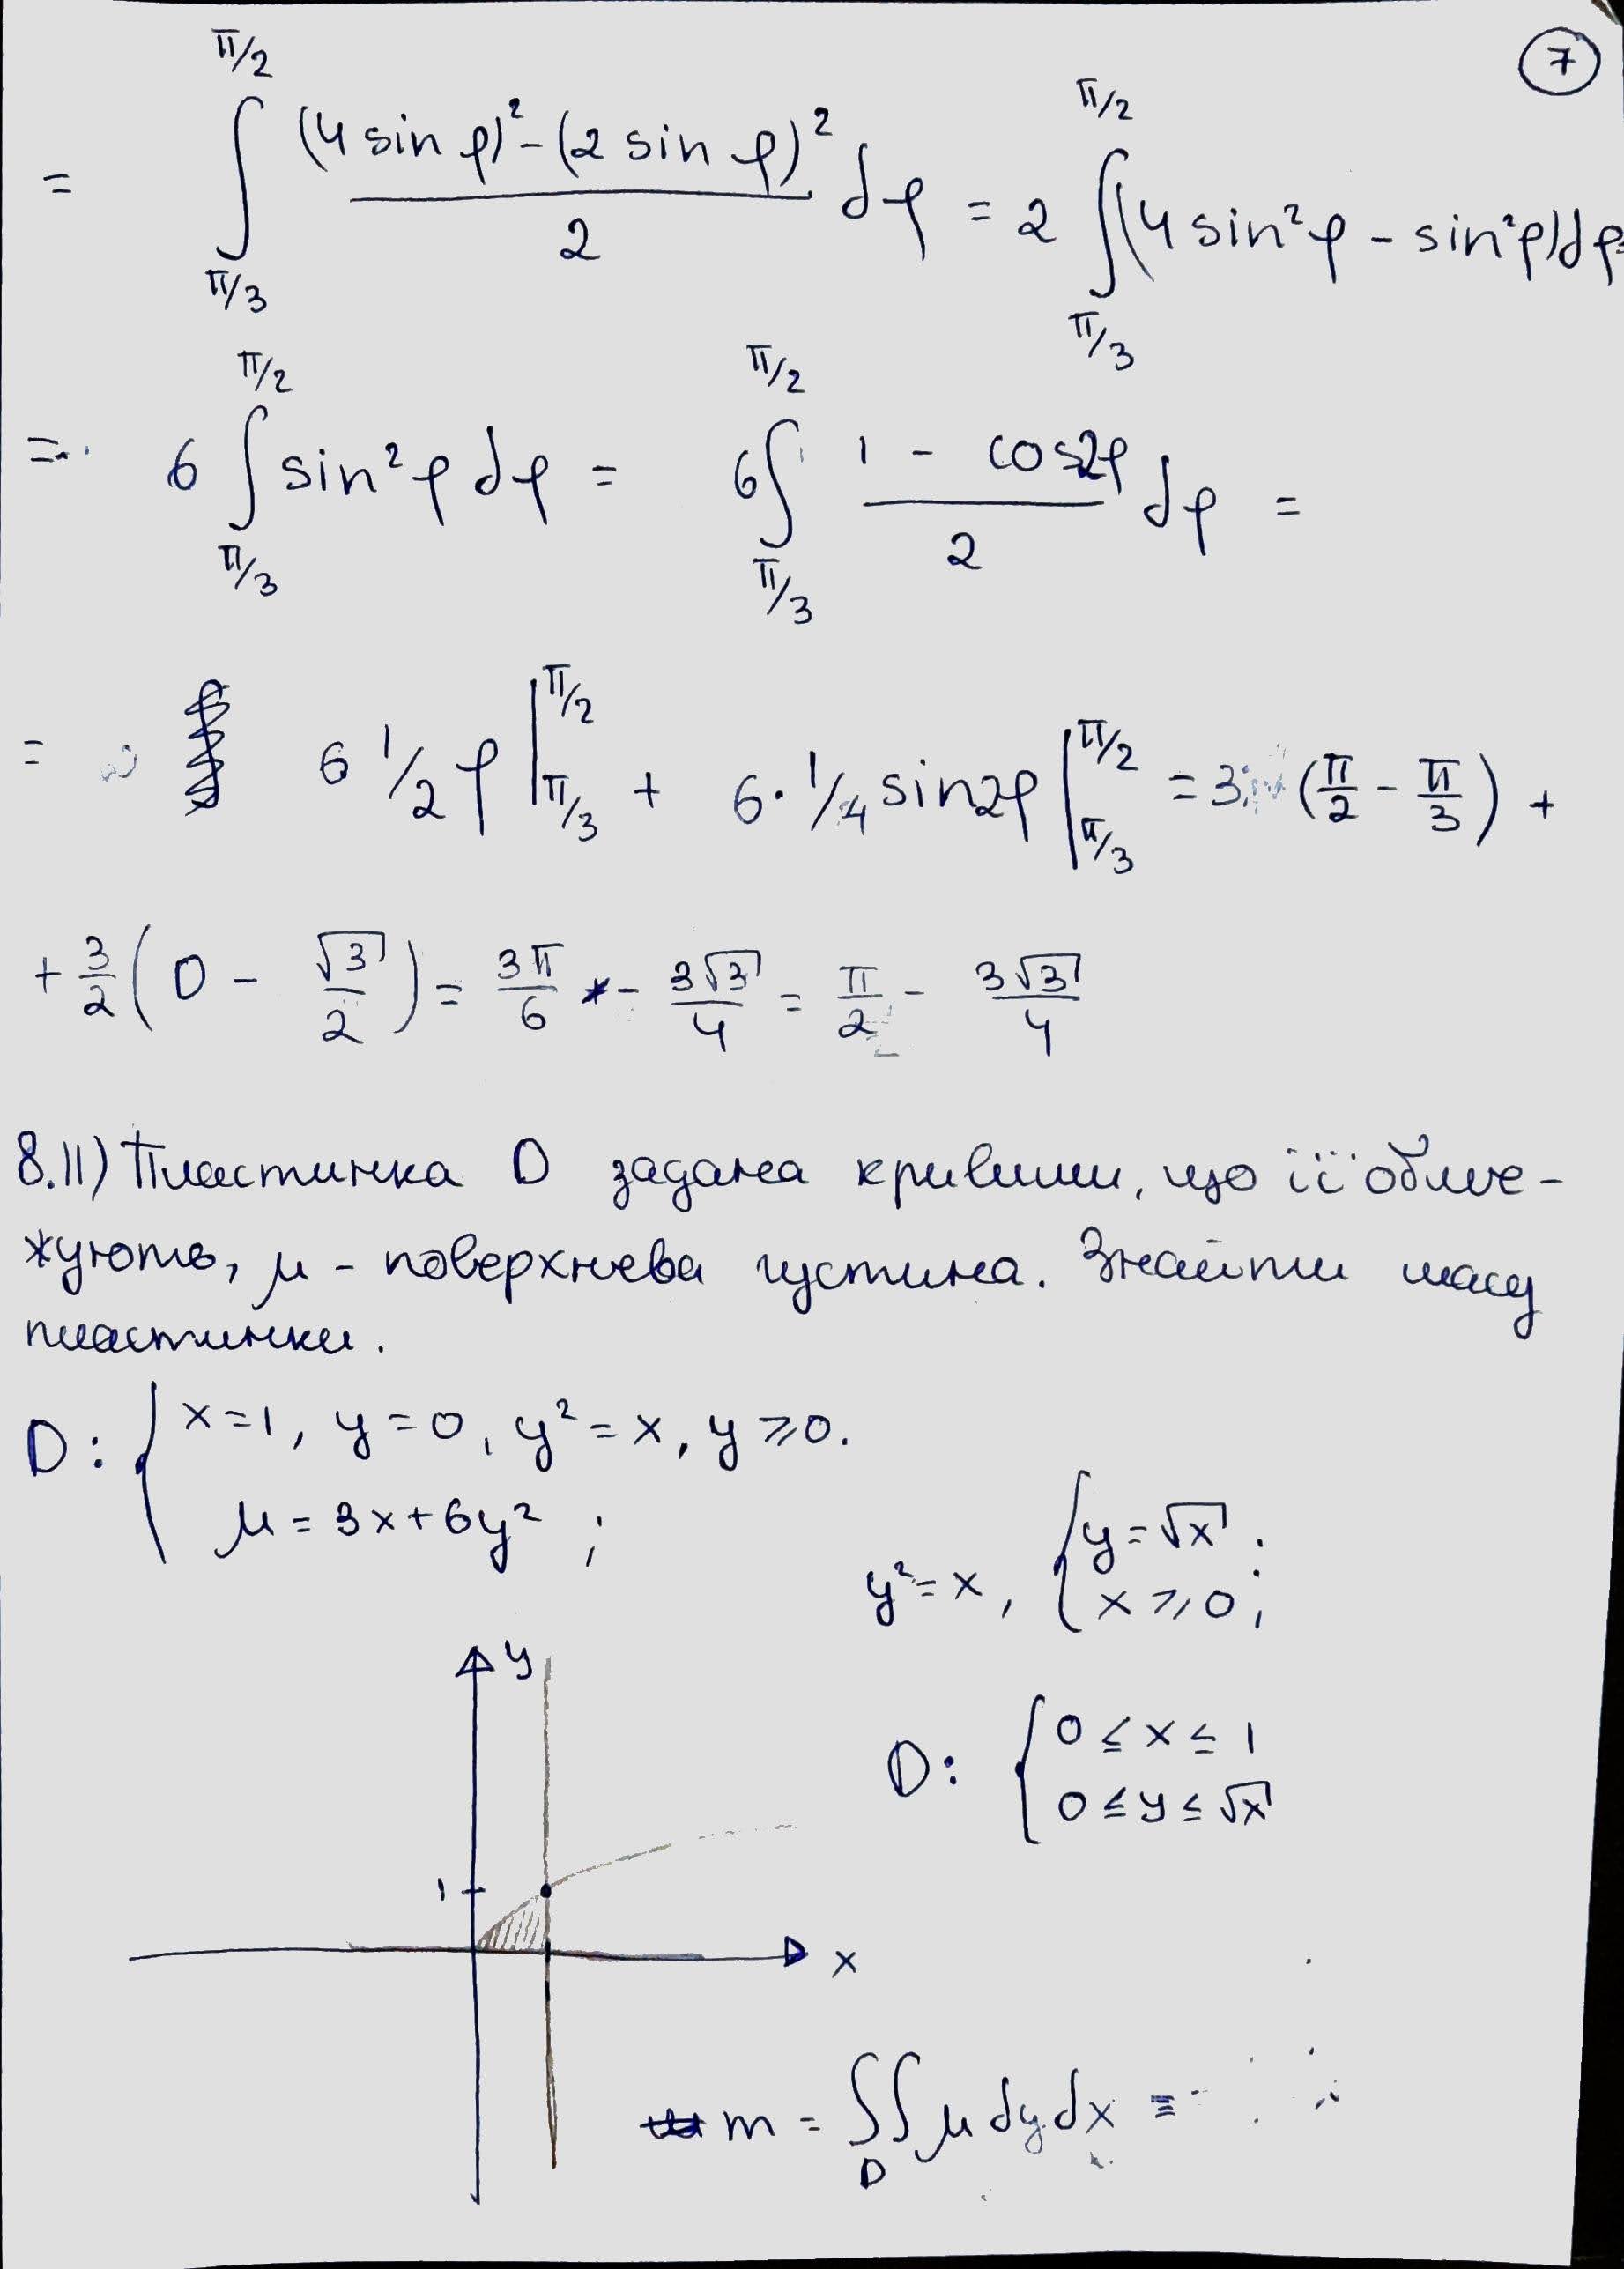 7
= ∫_{π/3}^{π/2} ((4 sin φ)² - (2 sin φ)²)/2 dφ = 2 ∫_{π/3}^{π/2} (4 sin²φ - sin²φ)dφ =
= 6 ∫_{π/3}^{π/2} sin²φ dφ = 6 ∫_{π/3}^{π/2} (1 - cos2φ)/2 dφ =
= 6 1/2 φ |_{π/3}^{π/2} + 6 · 1/4 sin2φ |_{π/3}^{π/2} = 3 (π/2 - π/3) +
+ 3/2 (0 - √3/2) = 3π/6 - 3√3/4 = π/2 - 3√3/4
8.11) Пластинка D задана кривими, що її обме-
жують, μ - поверхнева густина. Знайти масу
пластинки.
D: { x=1, y=0, y²=x, y⩾0.
μ = 3x+6y² ;
y²=x, { y=√x ;
x ⩾ 0;
y
D: { 0 ≤ x ≤ 1
0 ≤ y ≤ √x
1
x
m = ∬_D μ dy dx =